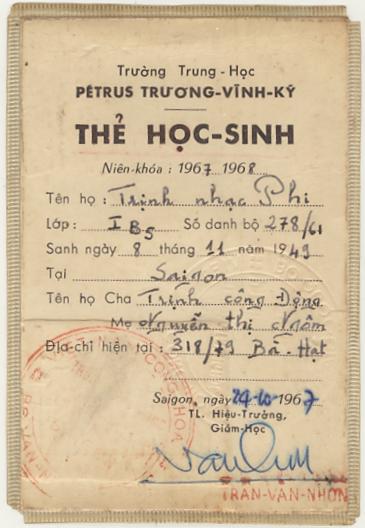 Trường Trung-Học
PÉTRUS TRƯƠNG-VĨNH-KÝ
THẺ HỌC-SINH
Niên-khóa : 1967 1968
Tên họ : Trịnh nhạc Phi
Lớp : I B5 Số danh bộ 278/61
Sanh ngày 8 tháng 11 năm 1949
Tại Saigon
Tên họ Cha Trịnh công Động
Mẹ Nguyễn thị Ngôm
Địa-chỉ hiện tại : 318/79 Bà-Hạt
Saigon, ngày 24-10-1967
TL. Hiệu-Trưởng,
Giám-Học
TRAN-VAN-NHON